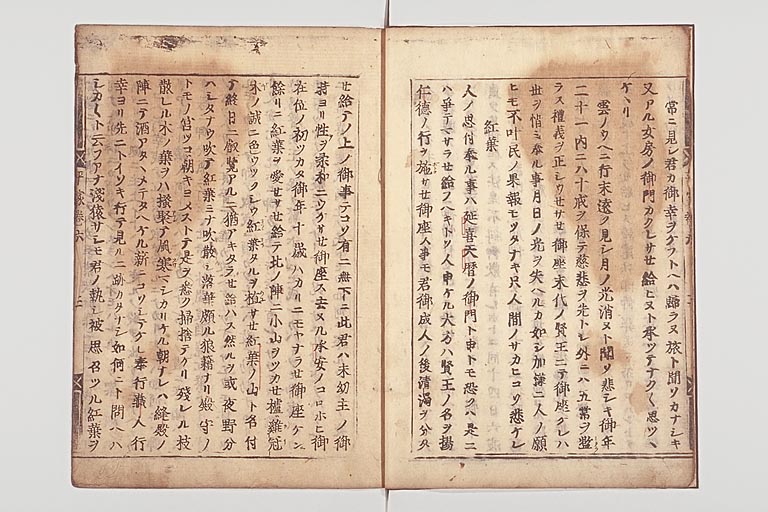 常ニ見シ君カ御幸ヲケフトヘハ歸ラヌ旅ト聞ソカナシキ
又アル女房ノ御門カクレサセ給ヒヌト承ツテナクく思ツヽ
ケヽリ
雲ノウヘニ行末遠ク見シ月ノ光消ヌト聞ソ悲シキ御年
二十一内ニハ十戒ヲ保テ慈悲ヲ先トシ外ニハ五常ヲ
ラス禮義ヲ正シウセサセ御座末代ノ賢王ニテ御座ケレハ
世ヲ惜ミ奉ル事月日ノ光ヲ失ヘルカ如シ加樣ニ人ノ願
ヒモ不叶民ノ果報モツタナキ只人間ノサカヒコソ悲ケレ
紅葉
人ノ思付奉ル事ハ延喜天曆ノ御門ト申トモ恐クハ是ニ
ハ爭テマサラセ給フヘキトソ人申ケル大方ハ賢王ノ名ヲ揚
仁德ノ行ヲ施サセ御座人事モ君御成人ノ後淸濁ヲ分タ
セ給テノ上ノ御事テコソ有ニ無下ニ此君ハ未幼主ノ御
時ヨリ性ヲ柔和ニウケサセ御座ス去ヌル承安ノコロホヒ御
在位ノ初ツカタ御年十歲ハカリニモヤナラセ御座ケン
餘リニ紅葉ヲ愛セサセ給テ北ノ陣ニ小山ヲツカセ櫨雞冠
木ノ誠ニ色ウツクシウ紅葉タルヲ植サセ紅葉ノ山ト名付
テ終日ニ叡覽アルニ猶アキタラセ給ハス然ルヲ或夜野分
ハシタナウ吹テ紅葉ミナ吹散シ落葉頗ル狼藉ナリ殿守ノ
トモノ宮ツコ朝キヨメストテ是ヲ悉ク掃捨テケリ殘レル枝
散レル木ノ葉ヲハ搔聚テ風寒シカリケル朝ナレハ縫殿ノ
陣ニテ酒アタヽメテタヘケル薪ニコソシテケレ奉行藏人行
幸ヨリ先ニトイソキ行テ見ルニ跡カタナシ如何ニト問ヘハ
シカくト云フアナ淺猿サシモ君ノ執シ被思召ツル紅葉ヲ